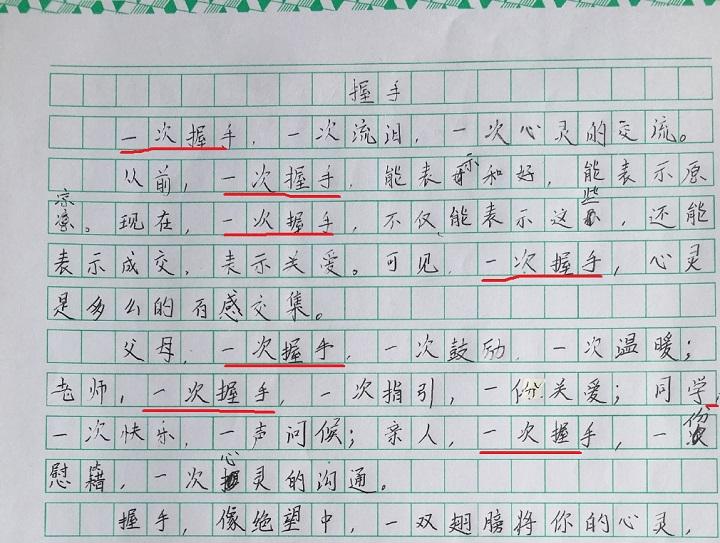 握手
一次握手，一次流泪，一次心灵的交流。
从前，一次握手，能表示和好，能表示原
凉。现在，一次握手，不仅能表示这些，还能
表示成交，表示关爱。可见，一次握手，心灵
是多么的百感交集。
父母，一次握手，一次鼓励，一次温暖；
老师，一次握手，一次指引，一份关爱；同学，
一次快乐，一声问候；亲人，一次握手，一份
慰籍，一次心灵的沟通。
握手，像绝望中，一双翅膀将你的心灵，